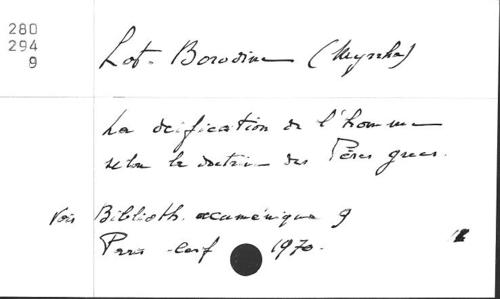 280
294
9
Lot-Borodine (Myrrha)
La déification de l'homme
selon la doctrine des Pères grecs.
Voir Biblioth. œcuménique 9
Paris cerf 1970.